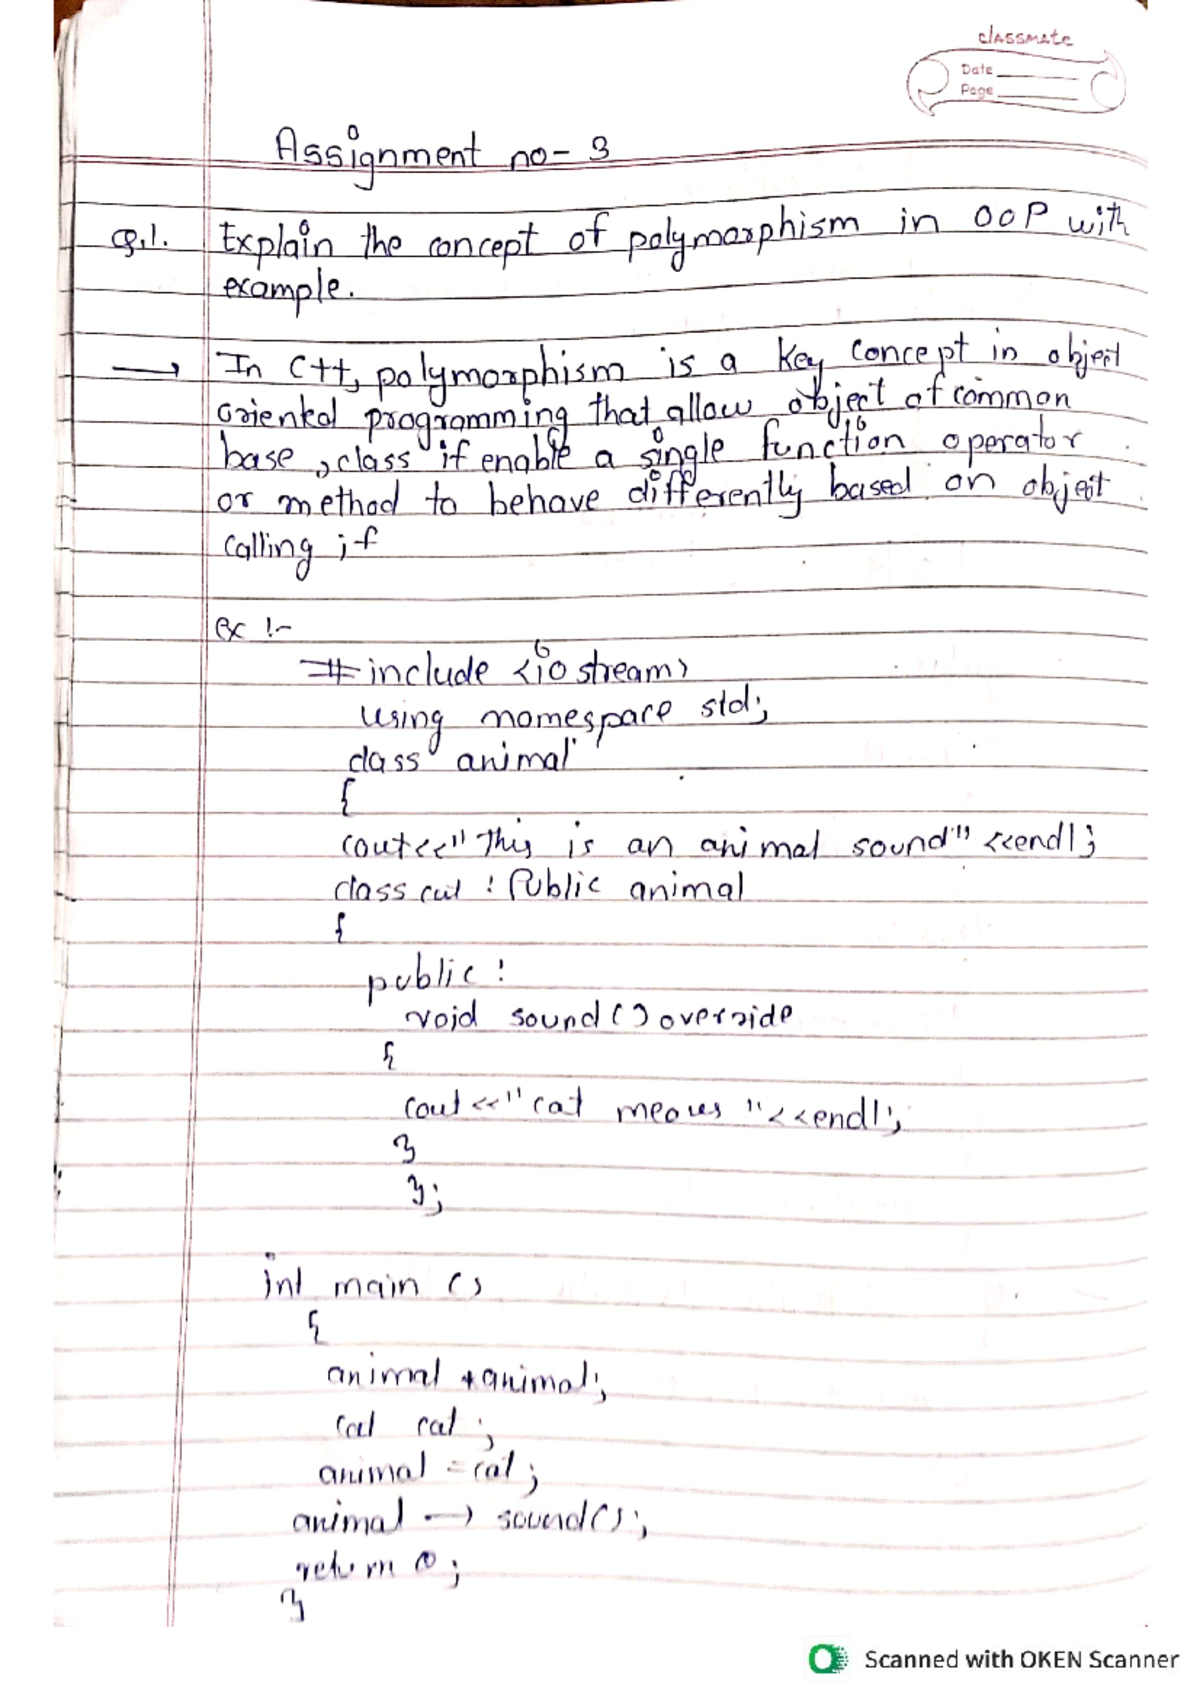 classmate
Date
Page
Assignment no- 3
Q.1. Explain the concept of polymorphism in OOP with
example.
→ In C++, polymorphism is a key concept in object
orienkd programming that allow object of common
base, class if enable a single function operator
or method to behave differently based on object
calling if
ex :-
#include <iostream>
using namespace std;
class animal
{
cout<<"This is an animal sound"<<endl;
class cat : Public animal
{
public :
void sound() override
{
cout<<"cat meows"<<endl;
}
};
int main ()
{
animal *animal;
cat cat;
animal = cat;
animal → sound();
return 0;
}
Scanned with OKEN Scanner